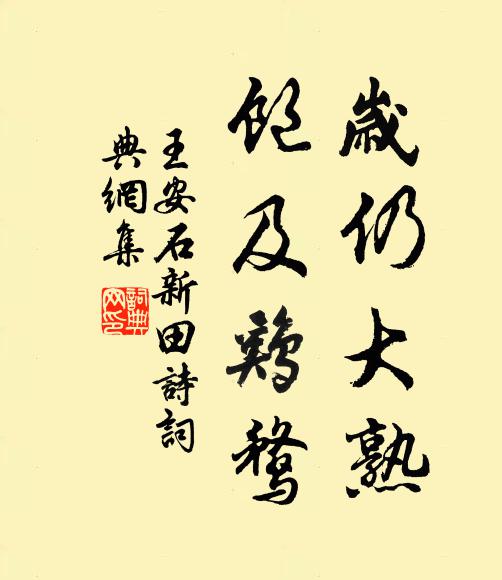 歲仍大熟
飽及鷄鶩
王安石新田詩詞
典網集
詞典
网印